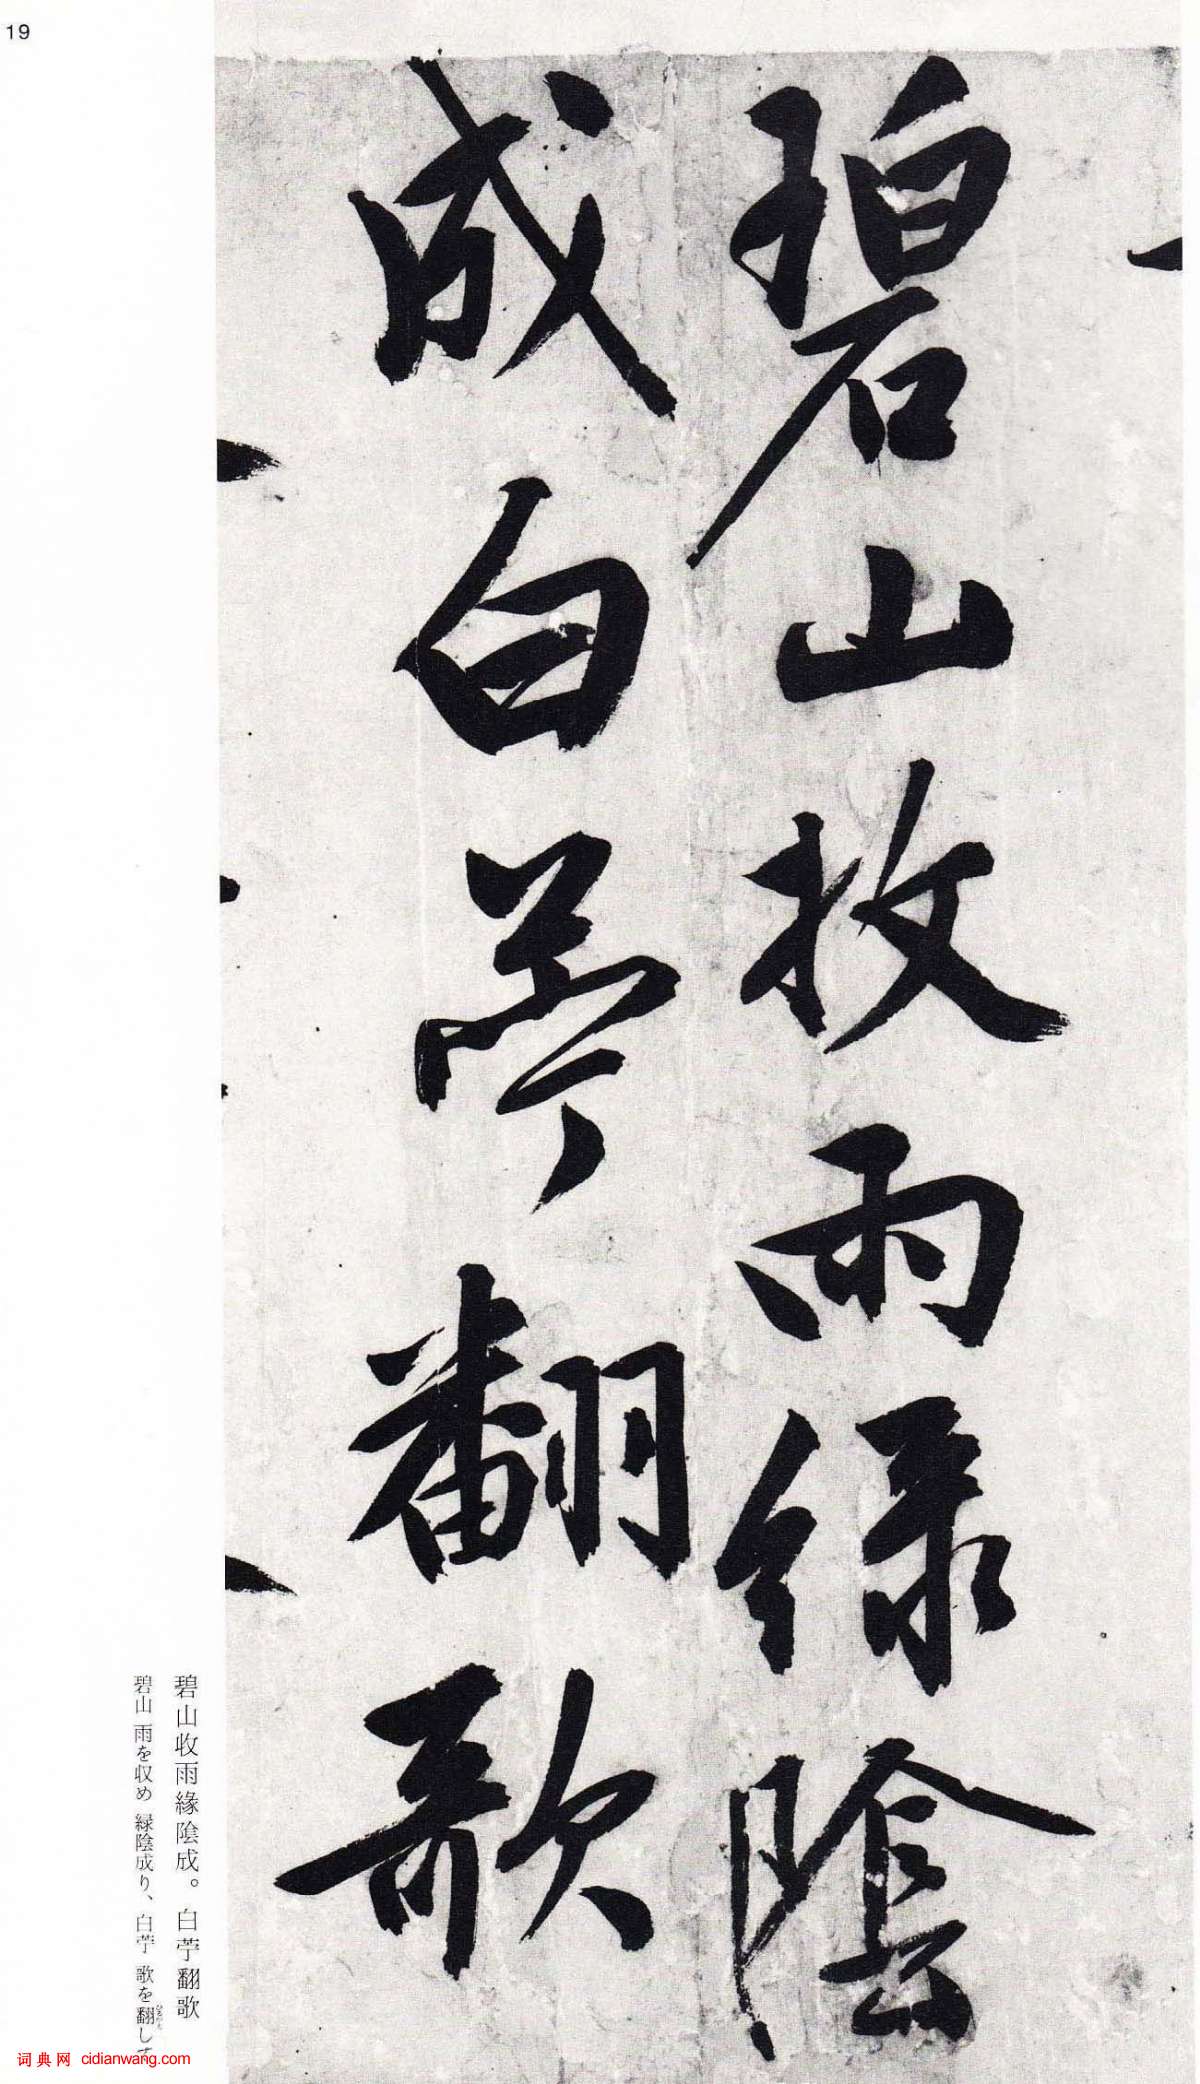 19
碧山收雨緑陰
成白苧翻歌
碧山收雨緣陰成。白苧翻歌
碧山 雨を収め 緑陰成り、白苧 歌を翻して
词典网 cidianwang.com